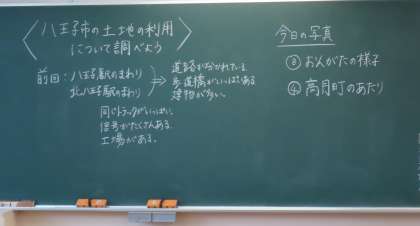 八王子市の土地の利用
について調べよう
前回：八王子駅のまわり
北八王子駅のまわり
道路が分かれている。
歩道橋がいっぱいある
建物が多い。
同じトラックがいっぱい。
信号がたくさんある。
工場がある。
今日の写真
③ おんがたの様子
④ 高月町のあたり